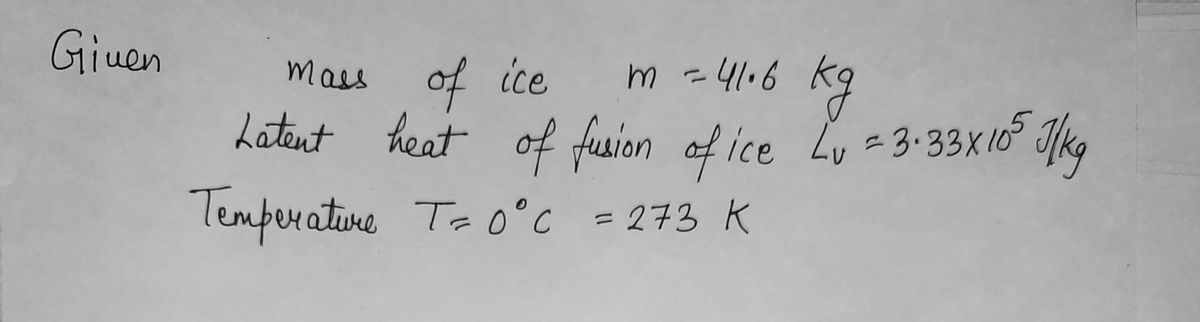 Given
mass of ice m = 41.6 kg
Latent heat of fusion of ice Lv = 3.33x10⁵ J/kg
Temperature T= 0°C = 273 K